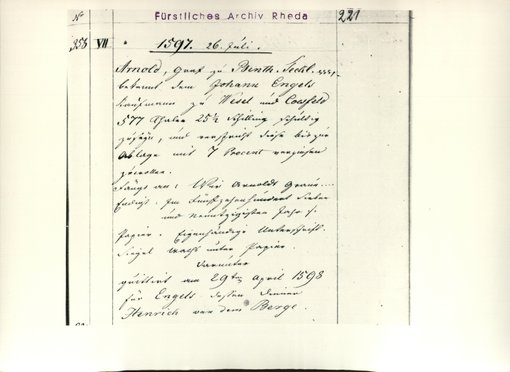 No Fürstliches Archiv Rheda 221
353 VII 1597. 26. Juli.
Arnold, Graf zu Benth. Teckl.
bekennt dem Johann Engels
Kaufmann zu Wesel und Coesfeld
577 Thaler 25½ Schilling schuldig
zu seyn, und verspricht diese bis zur
Ablage mit 7 Procent verzinsen
zu wollen.
Fängt an: Wir Arnoldt Graue
Endigt. Im Funffzehenhundert Sieben
und neuntzigsten Jahr s.
Papier. Eigenhändige Unterschrift.
Siegel Wachs unter Papier.
Darunter
quittirt am 29ten April 1598
für Engels dessen Diener
Henrich van dem Berge.